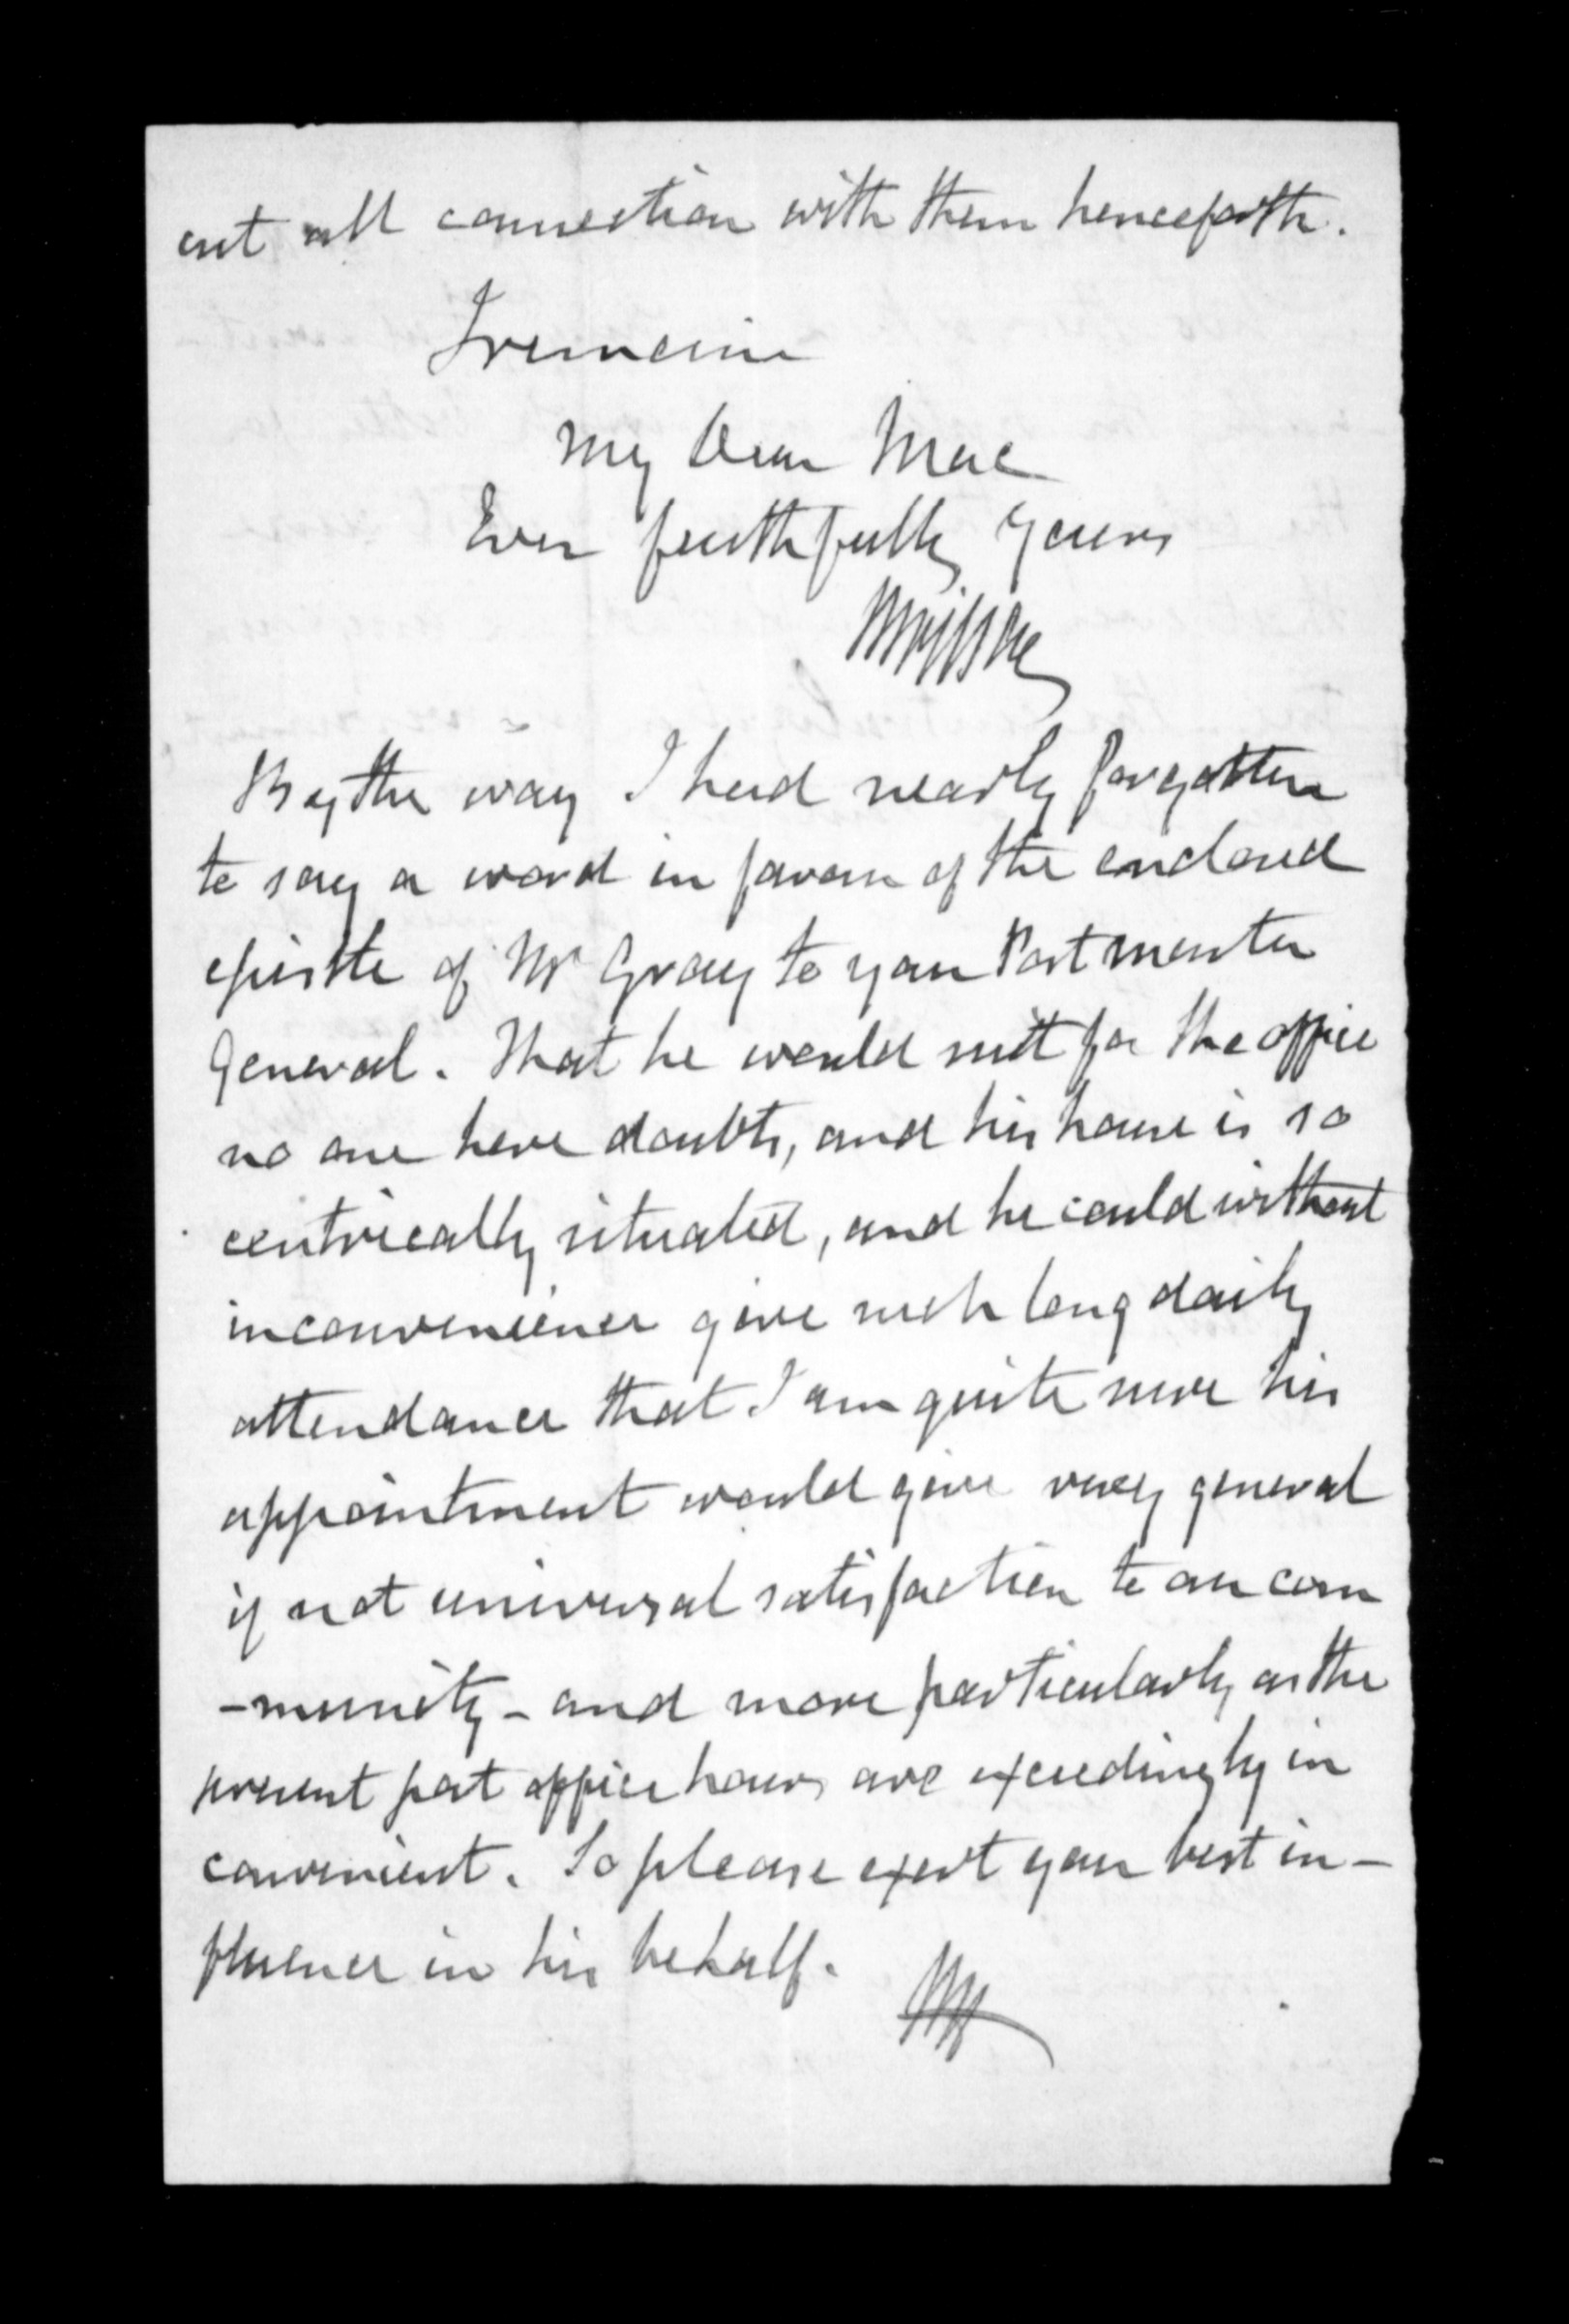 cut all connection with them henceforth.
I remain
My Dear Mac
Ever faithfully yours
By the way I had nearly forgotten
to say a word in favour of the enclosed
epistle of Mr Gray to your Postmaster
General. That he would suit for the office
no one here doubts, and his house is so
centrically situated, and he could without
inconvenience give such long daily
attendance that I am quite sure his
appointment would give very general
if not universal satisfaction to our com
-munity - and more particularly as the
present post office hours are exceedingly in
convenient. So please exert your best in-
fluence in his behalf.